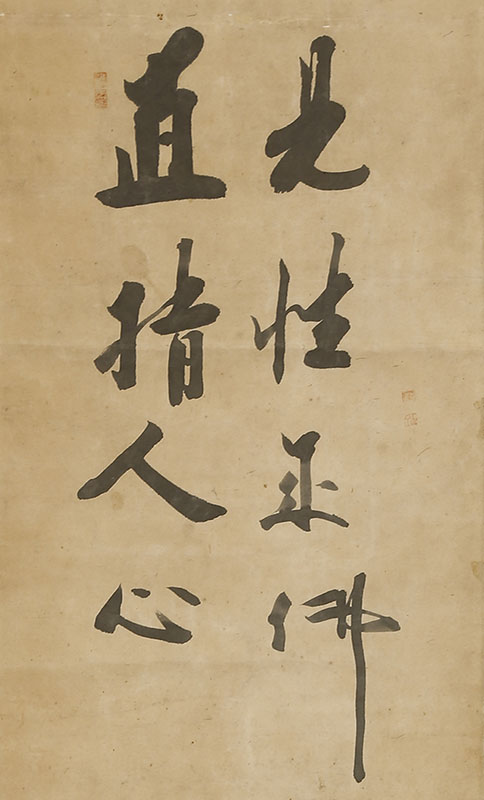 見性成佛
直指人心